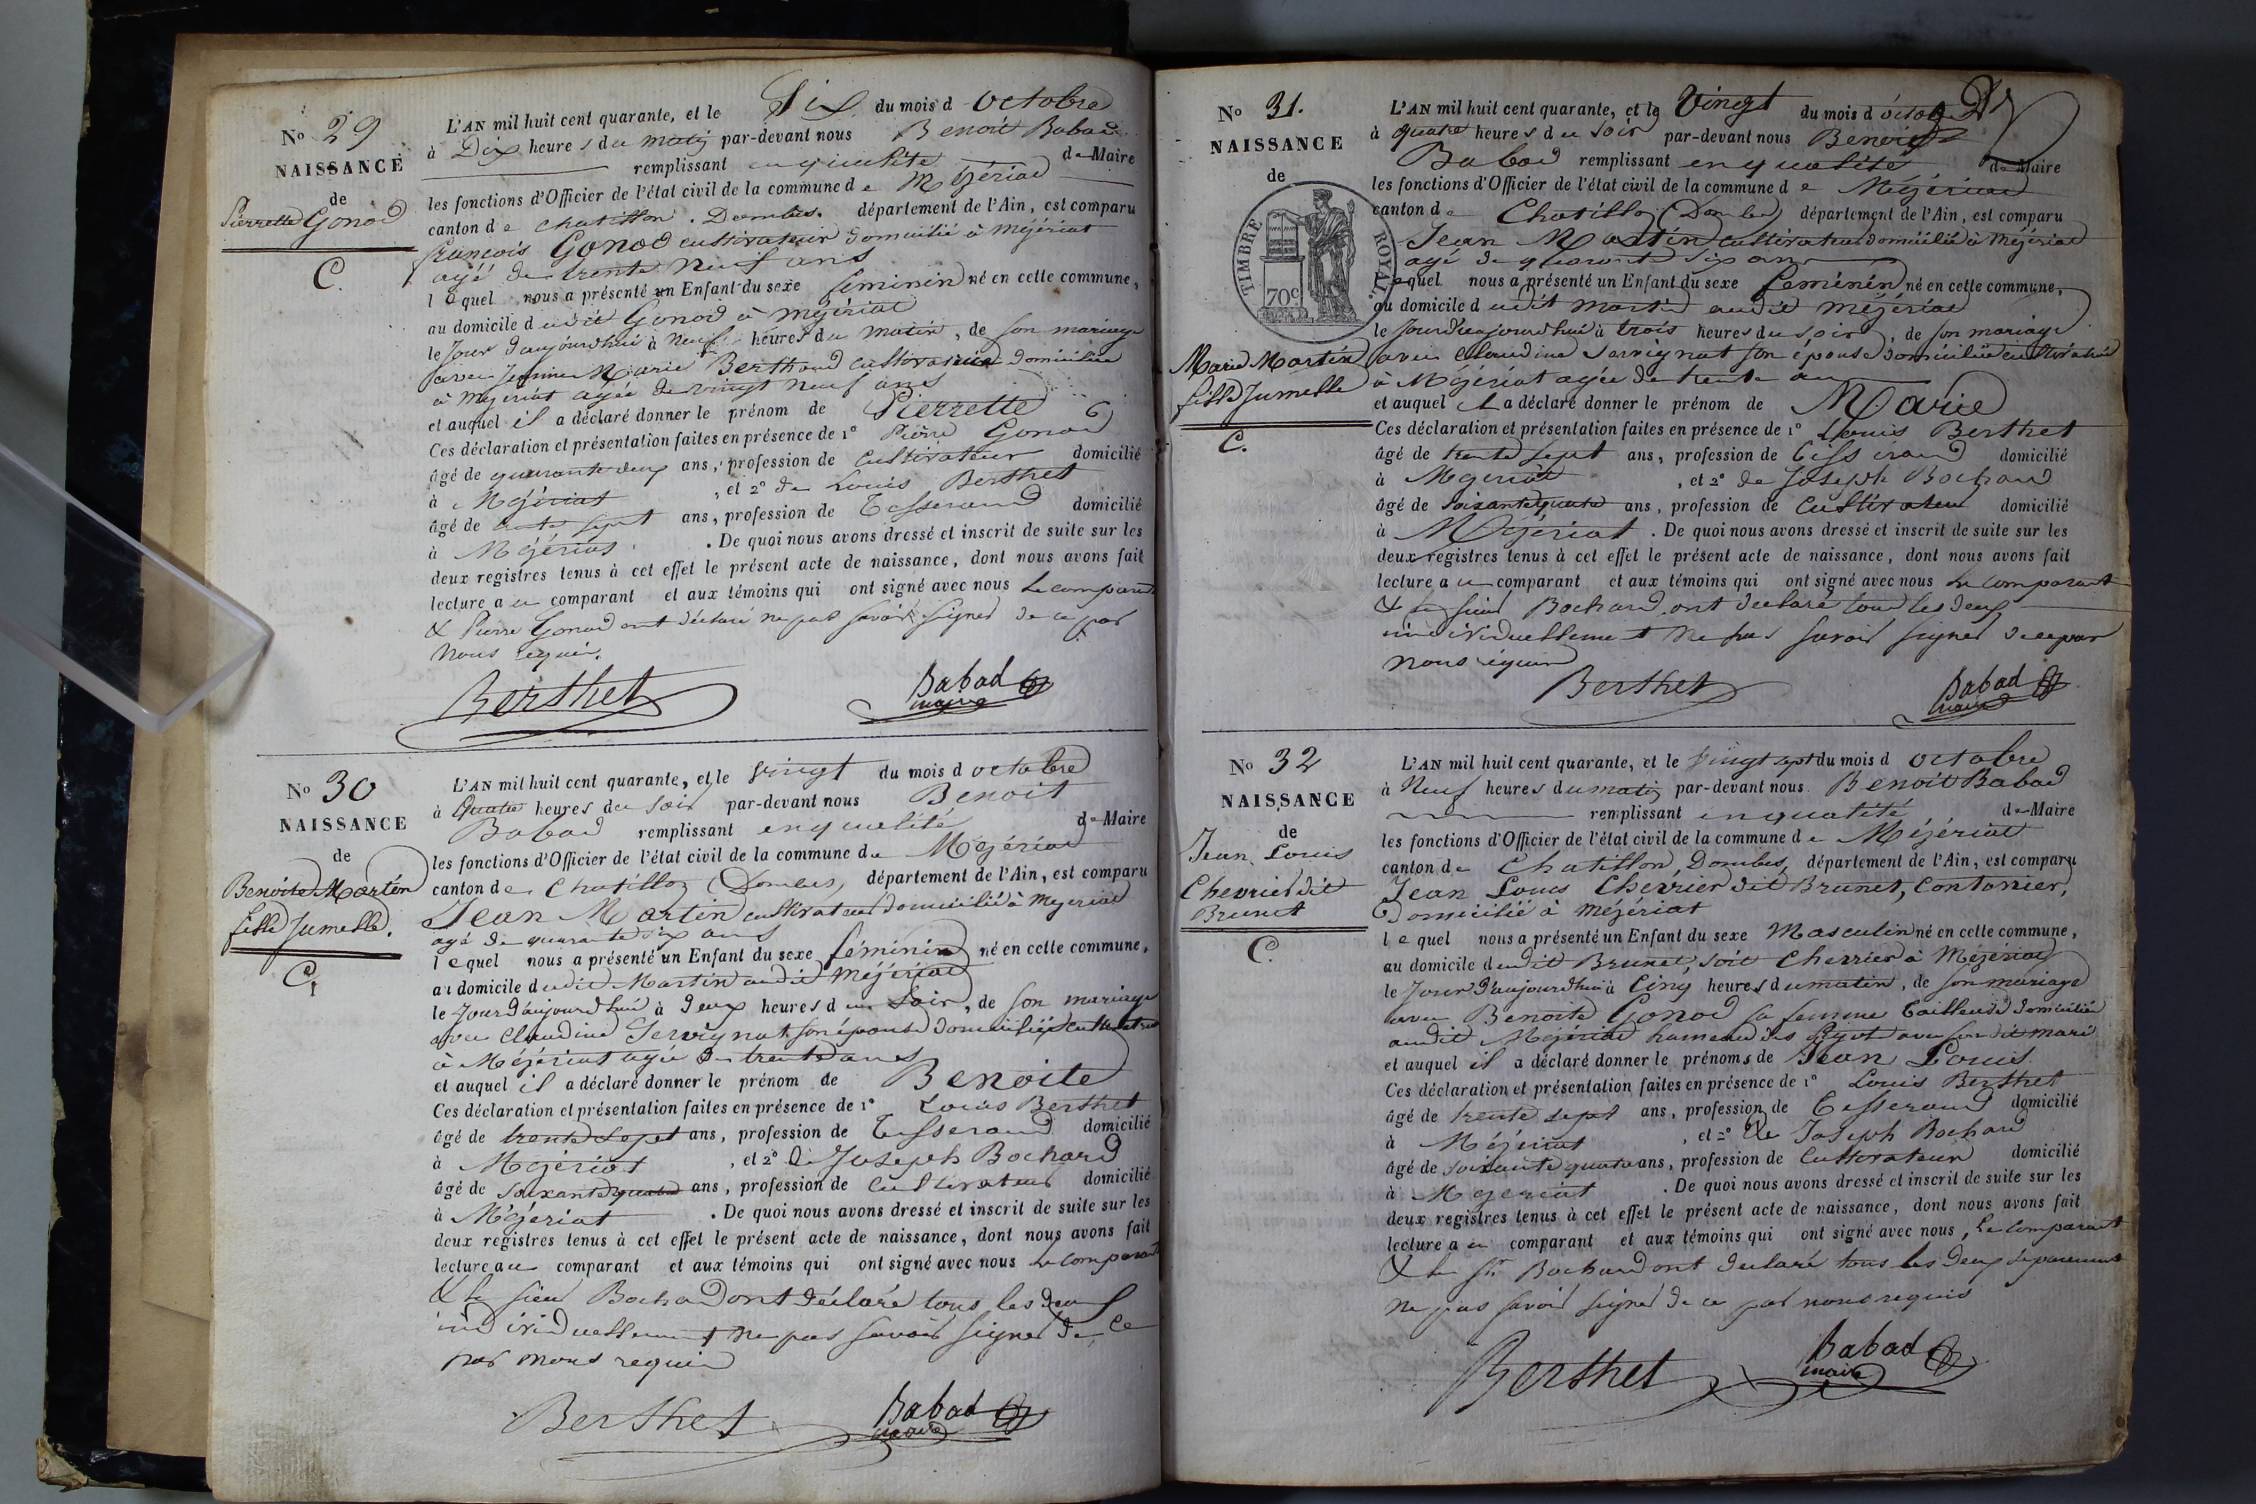 No 29
NAISSANCE
de
Pierrette Gonod
C.
L'AN mil huit cent quarante, et le Six du mois d octobre
à Dix heures du matin par-devant nous Benoit Babad
remplissant en qualité de Maire
les fonctions d'Officier de l'état civil de la commune de Mézériat
canton de Chatillon Dombes. département de l'Ain, est comparu
françois Gonod cultivateur domicilié à Mézériat
agé de trente neuf ans
lequel nous a présenté un Enfant du sexe féminin né en cette commune,
au domicile dudit Gonod à Mézériat
le Jour d'aujourdhui à Neuf heures du matin, de son mariage
avec Jeanne Marie Berthoud cultivatrice domiciliée
à Mézériat agée de vingt neuf ans
et auquel il a déclaré donner le prénom de Pierrette
Ces déclaration et présentation faites en présence de 1° Pierre Gonod
âgé de quarante deux ans, profession de Cultivateur domicilié
à Mézériat, et 2° de Louis Berthet
âgé de trente sept ans, profession de Tesserand domicilié
à Mézériat. De quoi nous avons dressé et inscrit de suite sur les
deux registres tenus à cet effet le présent acte de naissance, dont nous avons fait
lecture au comparant et aux témoins qui ont signé avec nous Le comparant
& Pierre Gonod ont déclaré ne pas savoir signer de ce par
nous requis.
Berthet Babad
maire
No 30
NAISSANCE
de
Benoite Martin
fille Jumelle.
C.
L'AN mil huit cent quarante, et le vingt du mois d octobre
à Quatre heures du soir par-devant nous Benoit
Babad remplissant en qualité de Maire
les fonctions d'Officier de l'état civil de la commune de Mézériat
canton de Chatillon (Dombes) département de l'Ain, est comparu
Jean Martin cultivateur domicilié à Mézériat
agé de quarante six ans
lequel nous a présenté un Enfant du sexe féminin né en cette commune,
au domicile dudit Martin audit Mézériat
le Jour d'aujourdhui à deux heures du soir, de son mariage
avec Claudine Servignat son épouse domiciliée cultivatrice
à Mézériat agée de trente ans
et auquel il a déclaré donner le prénom de Benoite
Ces déclaration et présentation faites en présence de 1° Louis Berthet
âgé de trente sept ans, profession de Tesserand domicilié
à Mézériat, et 2° de Joseph Bochard
âgé de soixante quatre ans, profession de Cultivateur domicilié
à Mézériat. De quoi nous avons dressé et inscrit de suite sur les
deux registres tenus à cet effet le présent acte de naissance, dont nous avons fait
lecture au comparant et aux témoins qui ont signé avec nous Le comparant
& le sieur Bochard ont déclaré tous les deux
individuellement ne pas savoir signer de ce
par nous requis
Berthet Babad
maire
No 31.
NAISSANCE
de
TIMBRE ROYAL.
70c
Marie Martin
fille Jumelle
C.
L'AN mil huit cent quarante, et le Vingt du mois d octobre
à quatre heures du soir par-devant nous Benoit
Babad remplissant en qualité de Maire
les fonctions d'Officier de l'état civil de la commune de Mézériat
canton de Chatillon (Dombes) département de l'Ain, est comparu
Jean Martin cultivateur domicilié à Mézériat
agé de quarante six ans
lequel nous a présenté un Enfant du sexe féminin né en cette commune,
au domicile dudit Martin audit Mézériat
le Jourd'aujourdhui à trois heures du soir, de son mariage
avec Claudine Servignat son épouse domiciliée cultivatrice
à Mézériat agée de trente ans
et auquel il a déclaré donner le prénom de Marie
Ces déclaration et présentation faites en présence de 1° Louis Berthet
âgé de trente sept ans, profession de Tisserand domicilié
à Mézériat, et 2° de Joseph Bochard
âgé de soixante quatre ans, profession de Cultivateur domicilié
à Mézériat. De quoi nous avons dressé et inscrit de suite sur les
deux registres tenus à cet effet le présent acte de naissance, dont nous avons fait
lecture au comparant et aux témoins qui ont signé avec nous Le comparant
& le sieur Bochard ont déclaré tous les deux
individuellement ne pas savoir signer de ce par
nous requis
Berthet Babad
maire
No 32
NAISSANCE
de
Jean Louis
Chevrier dit
Brunet
C.
L'AN mil huit cent quarante, et le vingt sept du mois d octobre
à Neuf heures du matin par-devant nous Benoit Babad
remplissant en qualité de Maire
les fonctions d'Officier de l'état civil de la commune de Mézériat
canton de Chatillon, Dombes, département de l'Ain, est comparu
Jean Louis Chevrier dit Brunet, Cantonier,
Domicilié à Mézériat
lequel nous a présenté un Enfant du sexe Masculin né en cette commune,
au domicile dudit Brunet, soit Chevrier à Mézériat
le Jour d'aujourdhui à Cinq heures du matin, de son mariage
avec Benoite Gonod sa femme Tailleuse domiciliée
audit Mézériat hameau des avec son dit mari
et auquel il a déclaré donner le prénoms de Jean Louis.
Ces déclaration et présentation faites en présence de 1° Louis Berthet
âgé de trente sept ans, profession de Tesserand domicilié
à Mézériat, et 2° de Joseph Bochard
âgé de soixante quatre ans, profession de Cultivateur domicilié
à Mézériat. De quoi nous avons dressé et inscrit de suite sur les
deux registres tenus à cet effet le présent acte de naissance, dont nous avons fait
lecture au comparant et aux témoins qui ont signé avec nous, Le comparant
& le Sr Bochard ont déclaré tous les deux séparément
ne pas savoir signer de ce par nous requis
Berthet Babad
maire